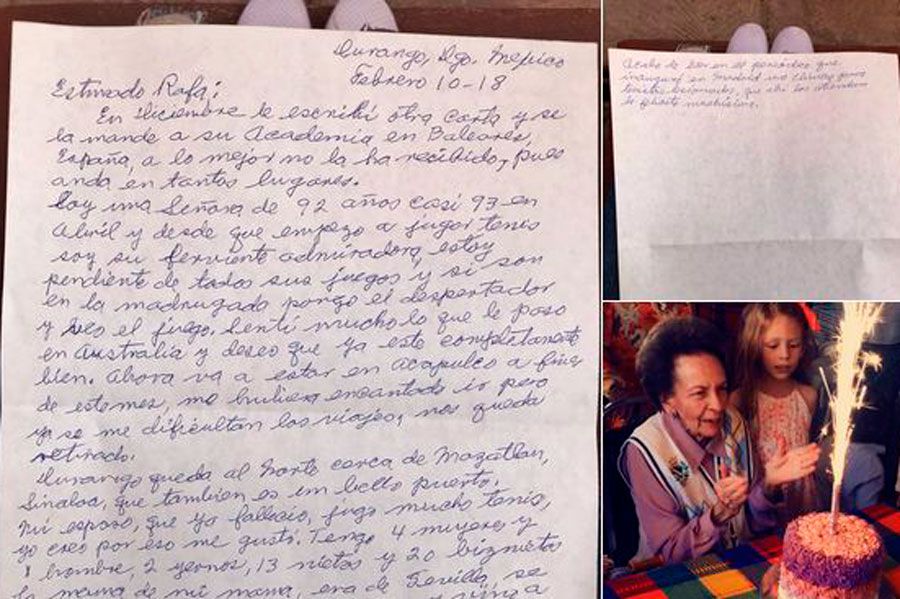 Durango, Dgo. Mexico
Febrero 10-18
Estimado Rafa:
En Diciembre le escribí otra carta y se
la mande a su Academia en Baleares,
España, a lo mejor no la ha recibido, pues
anda en tantos lugares.
Soy una Señora de 92 años casi 93 en
Abril y desde que empezo a jugar tenis
soy su ferviente admiradora, estoy
pendiente de todos sus juegos y si son
en la madrugada pongo el despertador
y veo el juego. Sentí mucho lo que le paso
en Australia y deseo que ya este completamente
bien. Ahora va a estar en Acapulco a fines
de este mes, me hubiera encantado ir pero
ya se me dificultan los viajes, nos queda
retirado.
Durango queda al Norte cerca de Mazatlan,
Sinaloa, que tambien es un bello puerto.
Mi esposo, que ya fallecio, jugo mucho tenis,
yo creo por eso me gustó. Tengo 4 mujeres y
1 hombre, 2 yernos, 13 nietos y 20 biznietos
la mama de mi mama, era de Sevilla, se
Acabo de leer en el periódico que
inauguró en Madrid una
tenistas lesionados, que ahi los atiendan
le felicito muchísimo.